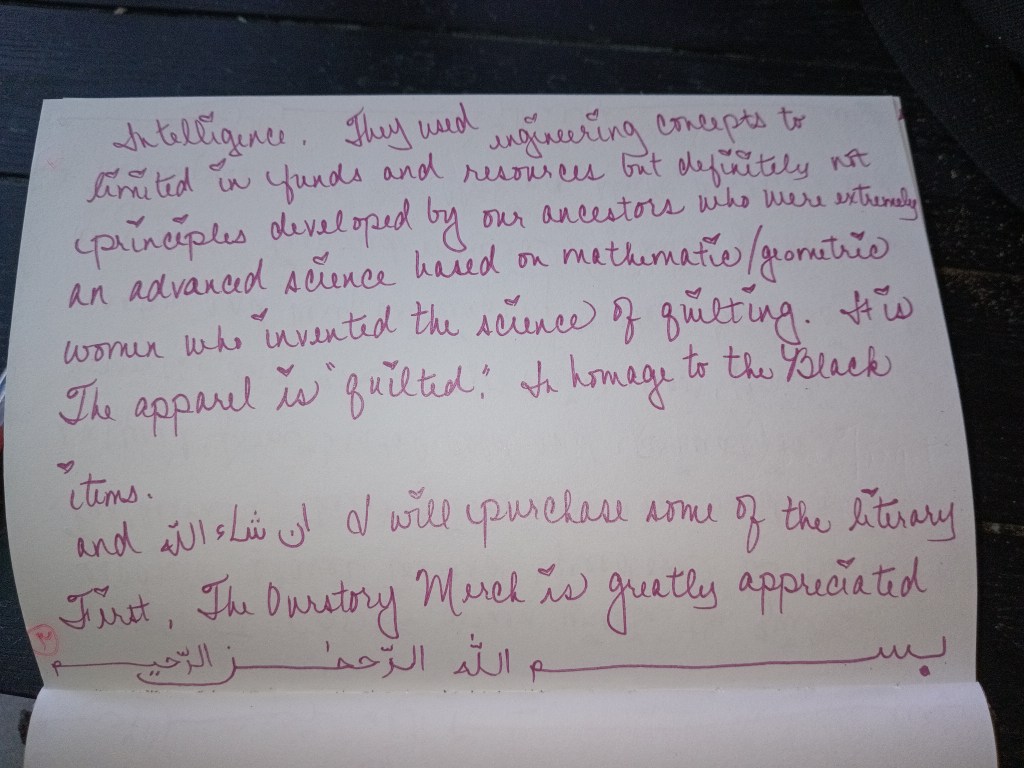 بسم الله الرّحمٰن الرّحيم
First, The Ourstory Merch is greatly appreciated
and ان شاء الله I will purchase some of the literary
items.
The apparel is "quilted." In homage to the Black
women who invented the science of quilting. It is
an advanced science based on mathematic/geometric
principles developed by our ancestors who were extremely
limited in funds and resources but definitely not
Intelligence. They used engineering concepts to